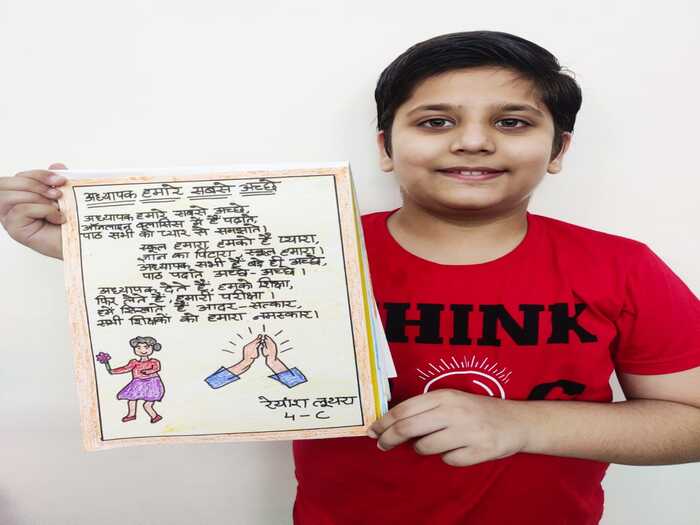 अध्यापक हमारे सबसे अच्छे
अध्यापक हमारे सबसे अच्छे,
ऑनलाइन क्लासिस में हैं पढ़ाते,
पाठ सभी को प्यार से समझाते।
स्कूल हमारा हमको है प्यारा,
ज्ञान का पिटारा, स्कूल हमारा।
अध्यापक सभी हैं बड़े ही अच्छे,
पाठ पढ़ाते अच्छे-अच्छे।
अध्यापक देते हैं, हमको शिक्षा,
फिर लेते हैं, हमारी परीक्षा।
हमें सिखाते हैं आदर-सत्कार,
सभी शिक्षकों को हमारा नमस्कार।
लूथरा
4-C
HINK